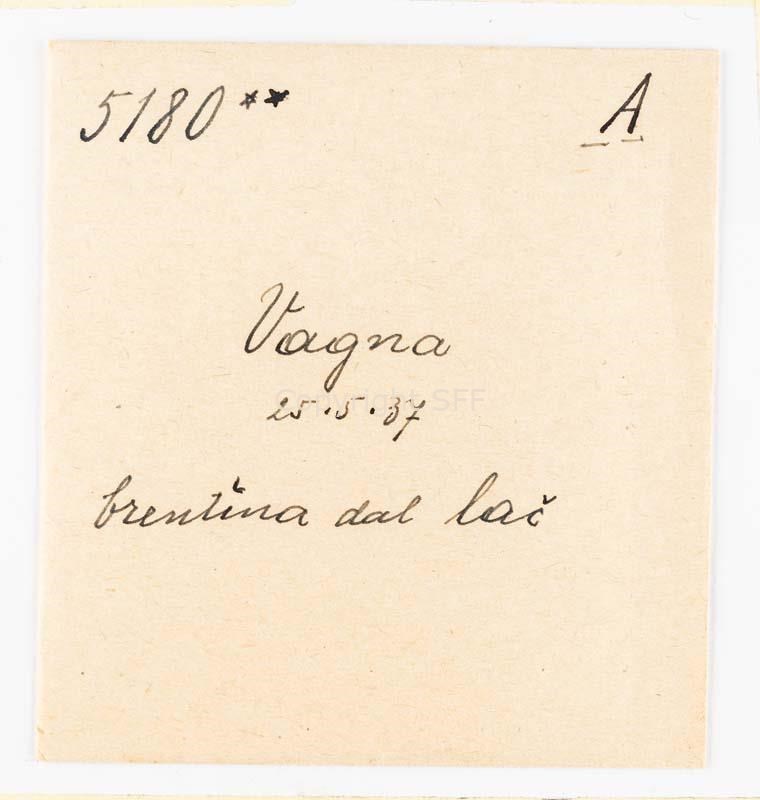 5180** A
Vagna
Copyright SFF
25.5.37
brentina dal lač